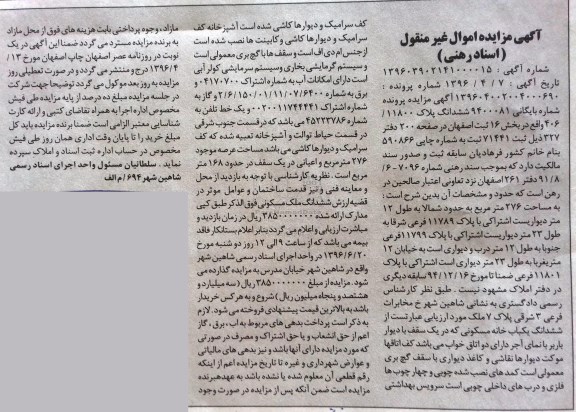 آگهی مزایده اموال غیر منقول
(اسناد رهنی)
شماره آگهی : ۱۳۹۶۰۳۹۰۲۱۴۱۰۰۰۰۱۵
تاریخ آگهی : ۷ / ۴ / ۱۳۹۶ شماره پرونده :
۱۳۹۶۰۴۰۰۲۰۰۴۰۰۰۶۹۰ آگهی مزایده پرونده
شماره بایگانی : ۹۴۰۰۰۸۱ ششدانگ پلاک ۱۱۸۰۰ /
۴۰۶ واقع در بخش ۱۶ ثبت اصفهان در صفحه ۲۰۰ دفتر
۳۲۷ ذیل ثبت ۷۱۴۴۱ به شماره چاپی ۵۹۰۸۶۶
بنام خانم کشور فرهادیان سابقه ثبت و صدور سند
مالکیت دارد که بموجب سند رهنی شماره ۷۰۹۶ - ۶/
۹۱/۸ دفتر ۲۶۱ اصفهان نزد تعاونی اعتبار صالحین در
رهن است که حدود و مشخصات آن بدین شرح است :
به مساحت ۲۷۶ متر مربع به حدود شمالا به طول ۱۲
متر دیواریست اشتراکی با پلاک ۱۱۷۸۹ فرعی شرقا به
طول ۲۳ متر دیواریست اشتراکی با پلاک ۱۱۷۹۹ فرعی
جنوبا به طول ۱۲ متر درب و دیواری است به خیابان ۱۲
متریغربا به طول ۲۳ متر دیواری است اشتراکی با پلاک
۱۱۸۰۱ فرعی ضمنا تا مورخ ۹۴/۱۲/۱۶ سابقه دیگری
در دفتر املاک مشهود نیست . طبق نظر کارشناس
رسمی دادگستری به نشانی شاهین شهر خ مخابرات
فرعی ۳ شرقی پلاک ۷ ملک مورد ارزیابی عبارتست از
ششدانگ یکباب خانه مسکونی که در یک سقف با دیوار
باربر با نمای آجر دارای دو اتاق خواب می باشد کف اتاقها
موکت دیوارها نقاشی و کاغذ دیواری با سقف گچ بری
معمولی است کمدهای نصب شده چوبی و چهار چوب ها
فلزی و درب های داخلی چوبی است سرویس بهداشتی
کف سرامیک و دیوارها کاشی شده است آشپزخانه کف
سرامیک و دیوارها کاشی و کابینت ها نصب شده است
ازجنس ام دی اف است و سقف ها با گچ بری معمولی است
و سیستم گرمایشی بخاری وسیستم سرمایشی کولر آبی
است دارای امکانات آب به شماره اشتراک ۴۱۷۰۷۰۰ و
برق به شماره ۶/۱۵۰/۰۱/۱۱/۰۷/۶۴۰۰/۲ و گاز به
شماره اشتراک ۰۰۲۰۰۱۱۷۴۴۴۴۱ و یک خط تلفن به
شماره ۴۵۲۲۳۷۸۶ می باشد که درقسمت جنوب شرقی
در قسمت حیاط توالت و آشپزخانه تعبیه شده که کف
سرامیک و دیوارها کاشی می باشد مساحت عرصه موجود
۲۷۶ متر مربع و اعیانی در یک سقف در حدود ۱۶۸ متر
مربع است . نظریه کارشناسی با توجه به بازدید از محل
و معاینه فنی و نیز قدمت ساختمان و عوامل موثر در
قضیه ارزش ششدانگ ملک مسکونی فوق الذکر طبق کپی
مدارک ارائه شده ۳۸۵۰۰۰۰۰۰۰ ریال در زمان بازدید و
مباشرت ارزیابی و اعلام می گردد بنابر اعلام بستانکار فاقد
بیمه می باشد که از ساعت ۹ الی ۱۲ روز دو شنبه مورخ
۱۳۹۶/۶/۲۰ در واحد اجرای اسناد رسمی شاهین شهر
واقع در شاهین شهر خیابان مدرس به مزایده گذارده می
شود. مزایده از مبلغ ۳۸۵۰۰۰۰۰۰۰ ریال ( سه میلیارد و
هشتصد و پنجاه میلیون ریال ) شروع و به هر کس خریدار
باشد به بالاترین قیمت پیشنهادی فروخته می شود. لازم
به ذکر است پرداخت بدهی های مربوط به آب، برق ، گاز
اعم از حق انشعاب و یا حق اشتراک و مصرف در صورتی
که مورد مزایده دارای آنها باشد و نیز بدهی های مالیاتی
و عوارض شهرداری و غیره تا تاریخ مزایده اعم از اینکه
رقم قطعی آن معلوم شده یا نشده باشد به عهدهبرنده
مزایده است ضمن آنکه پس از مزایده در صورت وجود
مازاد، وجوه پرداختی بابت هزینه های فوق از محل مازاد
به برنده مزایده مسترد می گردد ضمنا این آگهی در یک
نوبت در روزنامه عصر اصفهان چاپ اصفهان مورخ ۱۳ /
۱۳۹۶/۴ درج و منتشر می گردد و در صورت تعطیلی روز
مزایده به روز بعد موکول می گردد توضیحا جهت شرکت
در جلسه مزایده مبلغ ده درصد از پایه مزایده طی فیش
مخصوص اداره اجرا به همراه تقاضای کتبی و ارائه کارت
شناسایی معتبر الزامی است ضمنا برنده مزایده باید کل
مبلغ خرید را تا پایان وقت اداری همان روز طی فیش
مخصوص در حساب اداره ثبت اسناد و املاک سپرده
نماید . سلطانیان مسئول واحد اجرای اسناد رسمی
شاهین شهر ۶۹۴/ م الف